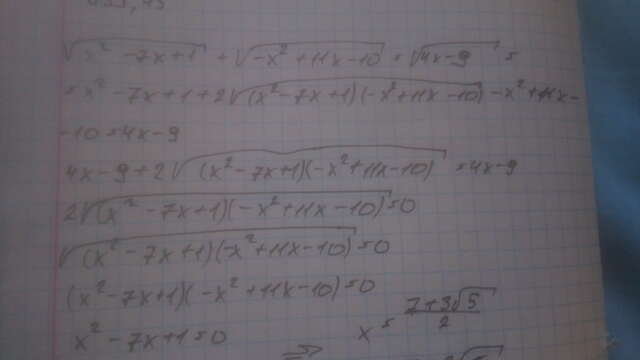 √x² - 7x + 1 + √-x² + 11x - 10 = √4x - 9 =
= x² - 7x + 1 + 2√(x² - 7x + 1)(-x² + 11x - 10) - x² + 11x -
- 10 = 4x - 9
4x - 9 + 2√(x² - 7x + 1)(-x² + 11x - 10) = 4x - 9
2√(x² - 7x + 1)(-x² + 11x - 10) = 0
√(x² - 7x + 1)(-x² + 11x - 10) = 0
(x² - 7x + 1)(-x² + 11x - 10) = 0
x² - 7x + 1 = 0 x = 7 + 3√5 / 2